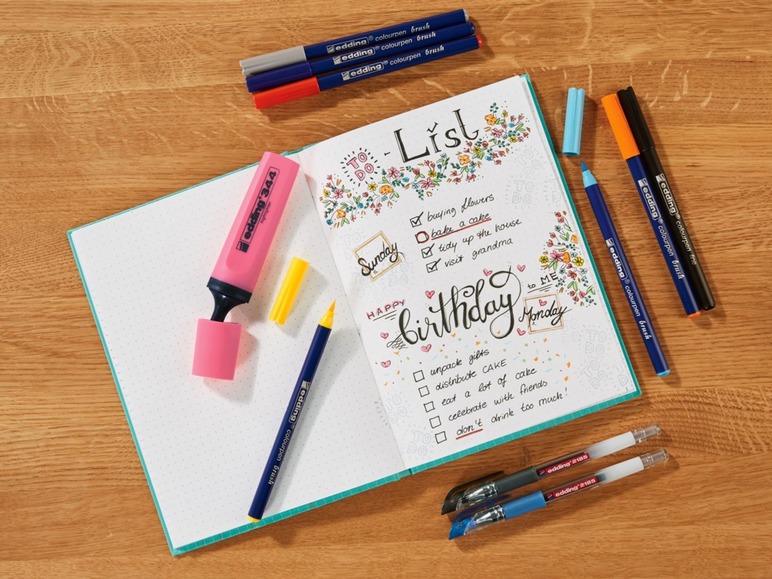 edding® colourpen brush
edding® colourpen brush
edding® colourpen brush
TO DO - List
edding 344
buying flowers
bake a cake
tidy up the house
visit grandma
Sunday
HAPPY birthday to ME
Monday
unpack gifts
distribute CAKE
eat a lot of cake
celebrate with friends
don't drink too much!
edding colourpen brush
edding colourpen brush
edding colourpen brush
edding colourpen fine
edding 2185
edding 2185